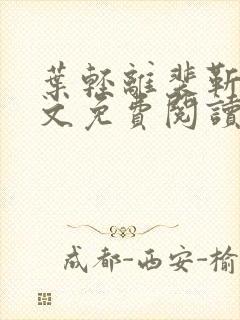 葉輕離裴靳
文免費閱讀
成都-西安-榆